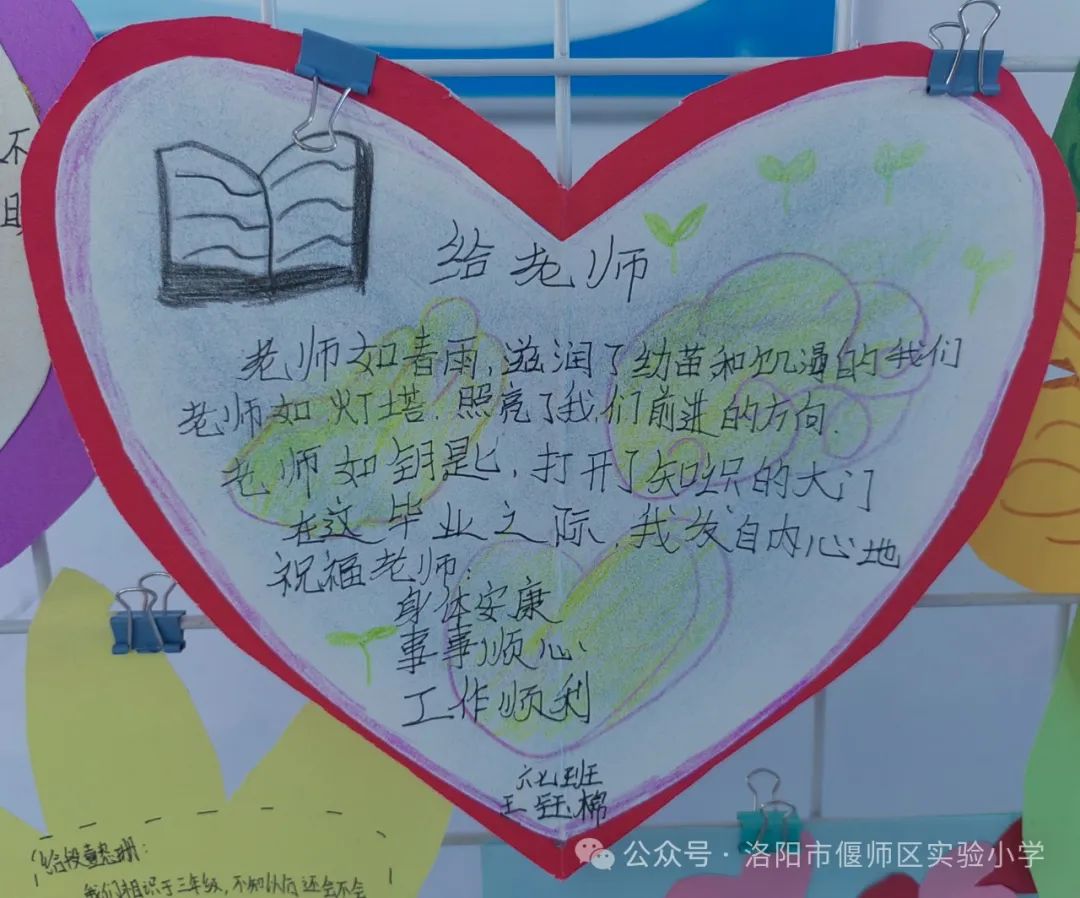 给老师
老师如春雨,滋润了幼苗和饥渴的我们
老师如灯塔.照亮了我们前进的方向.
老师如钥匙,打开了知识的大门
在这毕业之际 我发自内心地
祝福老师:
身体安康
事事顺心
工作顺利
六七班
王钰棉
我们相识于三年级,不知以后还会不会
公众号·洛阳市偃师区实验小学